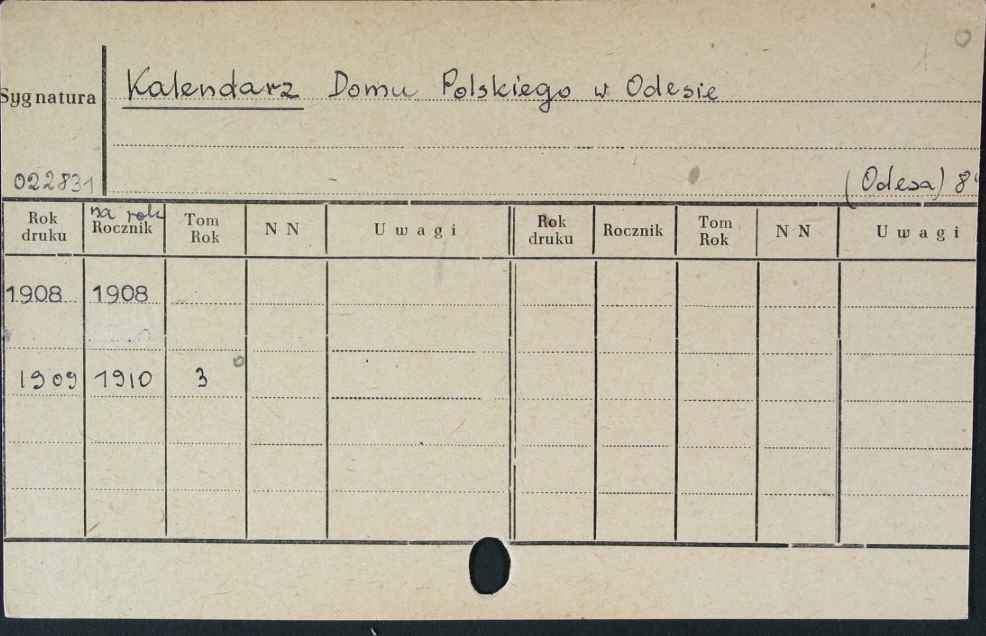 Kalendarz Domu Polskiego w Odesie
Sygnatura
022831
(Odesa) 8°
Rok druku
na rok
Rocznik
Tom Rok
N N
Uwagi
Rok druku
Rocznik
Tom Rok
N N
Uwagi
1908 1908
1909 1910 3